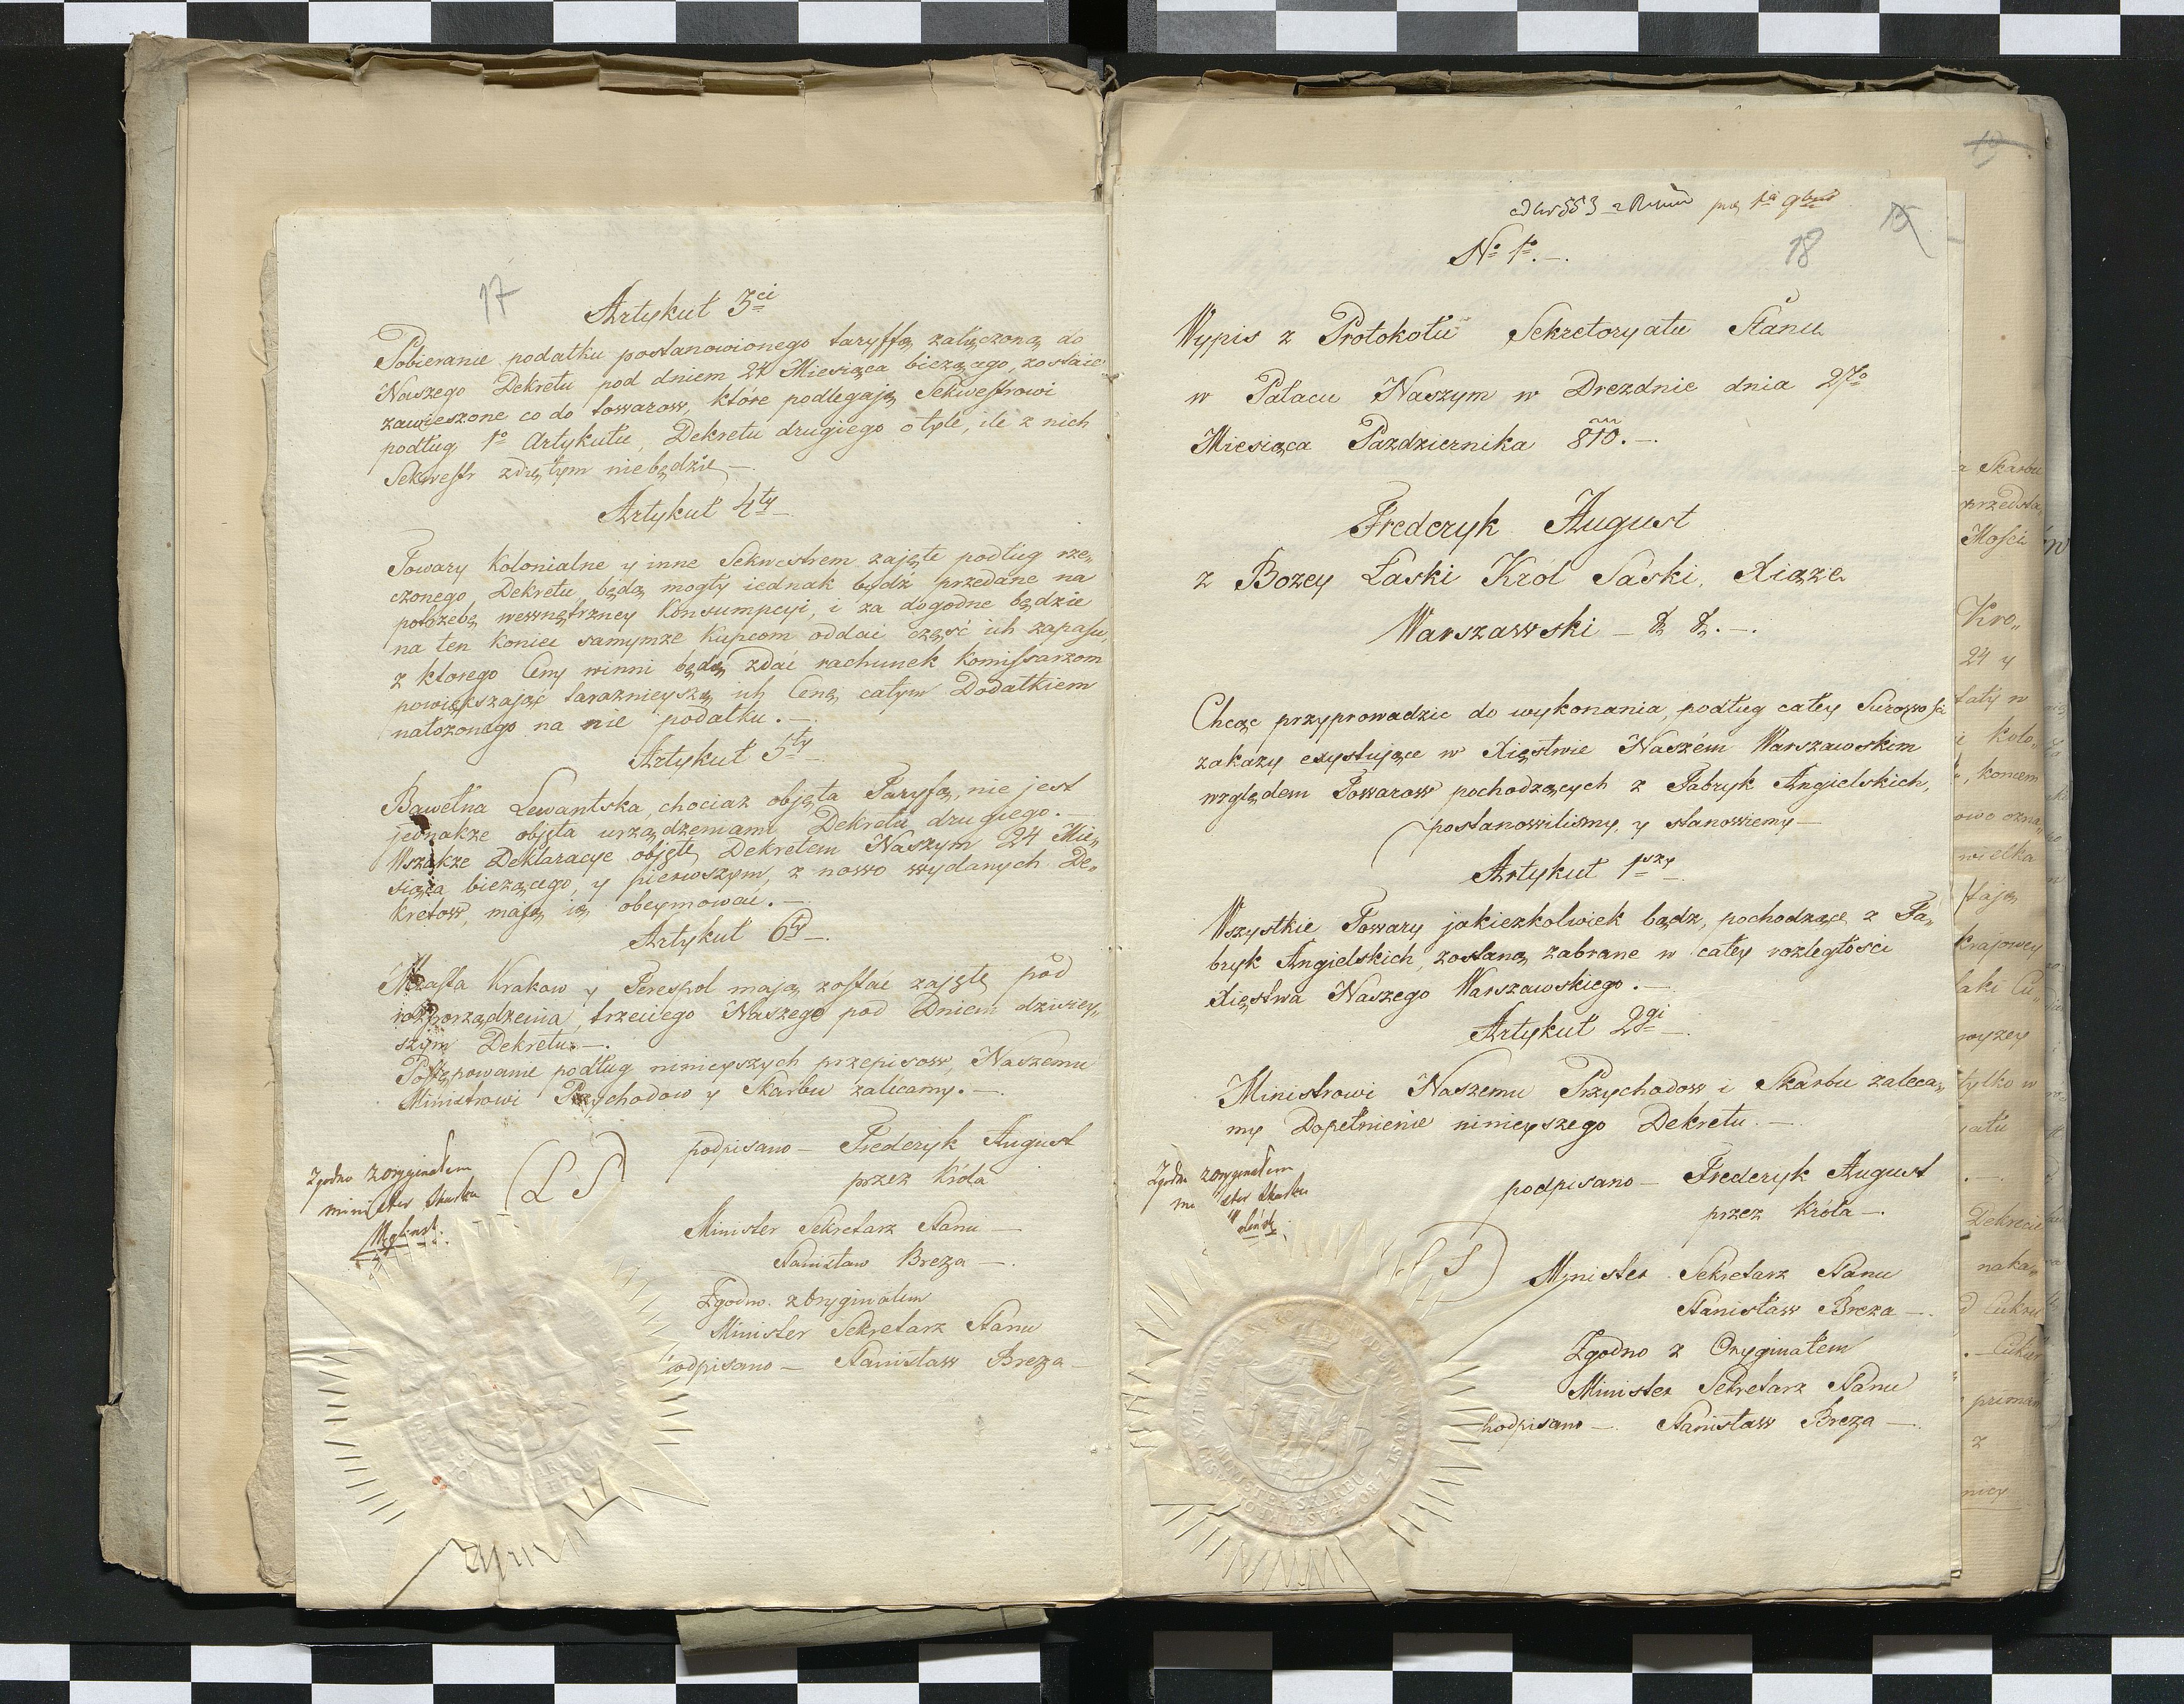 17
Artykuł 3ci
Pobieranie podatku postanowionego taryffą załączoną do
Naszego Dekretu pod dniem 24 Miesiąca bieżącego, zostaie
zawieszone co do towarow, które podlegają Sekwestrowi
podług 1o Artykułu, Dekretu drugiego o tyle, ile z nich
Sekwestr zdiętym niebędzie —
Artykuł 4ty —
Towary Kolonialne y inne Sekwestrem zajęte podług rze„
czonego Dekretu będą mogły iednak bydź przedane na
potrzebę wewnętrzney Konsumpcyi, i za dogodne będzie
na ten koniec samymże Kupcom oddać część ich zapasu,
z ktorego Ceny winni będą zdać rachunek Komissarzom
powiększając tarazniejszą ich Cenę całym Dodatkiem
nałożonego na nie podatku. —
Artykuł 5ty —
Bawełna Lewantska, chociaż objęta Taryfą, nie jest
jednakże objęta urządzeniami Dekretu drugiego. —
Wszakże Deklaracye objęte Dekretem Naszym 24 Mie„
siąca bieżącego, y pierwszym, z nowo wydanych De„
kretow, mają ią obeymować. —
Artykuł 6ty —
Miasta Krakow y Terespol mają zostać zajęte pod
rozporządzenia, trzeciego Naszego pod Dniem dzisiey„
szym Dekretu. —
Postępowanie podług ninieyszych przepisow, Naszemu
Ministrowi Przychodow y Skarbu zalecamy. —
podpisano — Frederyk August
przez Króla
(L S)
Zgodno z oryginałem
minister Skarbu
Minister Sekretarz Stanu —
Stanisław Breza —
Zgodno z Oryginałem
Minister Sekretarz Stanu
podpisano — Stanisław Breza —
18
15
No 1o. —
Wypis z Protokołu Sekretoryatu Stanu
w Pałacu Naszym w Dreznie dnia 27o
Miesiąca Pazdziernika 810. —
Frederyk August
z Bozey Łaski Król Saski, Xiąże
Warszawski — & &. —
Chcąc przyprowadzic do wykonania, podług całey Surowości
zakazy exystujące w Xięstwie Naszém Warszawskim
względem Towarow pochodzących z Fabryk Angielskich,
postanowilismy, y stanowiemy —
Artykuł 1szy
Wszystkie Towary jakiezkolwiek bądz, pochodzące z Fa„
bryk Angielskich, zostaną zabrane w całey rozległości
Xięstwa Naszego Warszawskiego. —
Artykuł 2gi —
Ministrowi Naszemu Przychodow i Skarbu zaleca„
my Dopełnienie ninieyszego Dekretu. —
podpisano — Frederyk August
przez Króla —
Zgodno z oryginałem
(L S)
Minister Sekretarz Stanu
Stanisław Breza —
Zgodno z Oryginałem
Minister Sekretarz Stanu
podpisano — Stanisław Breza —
MINISTER SKARBU